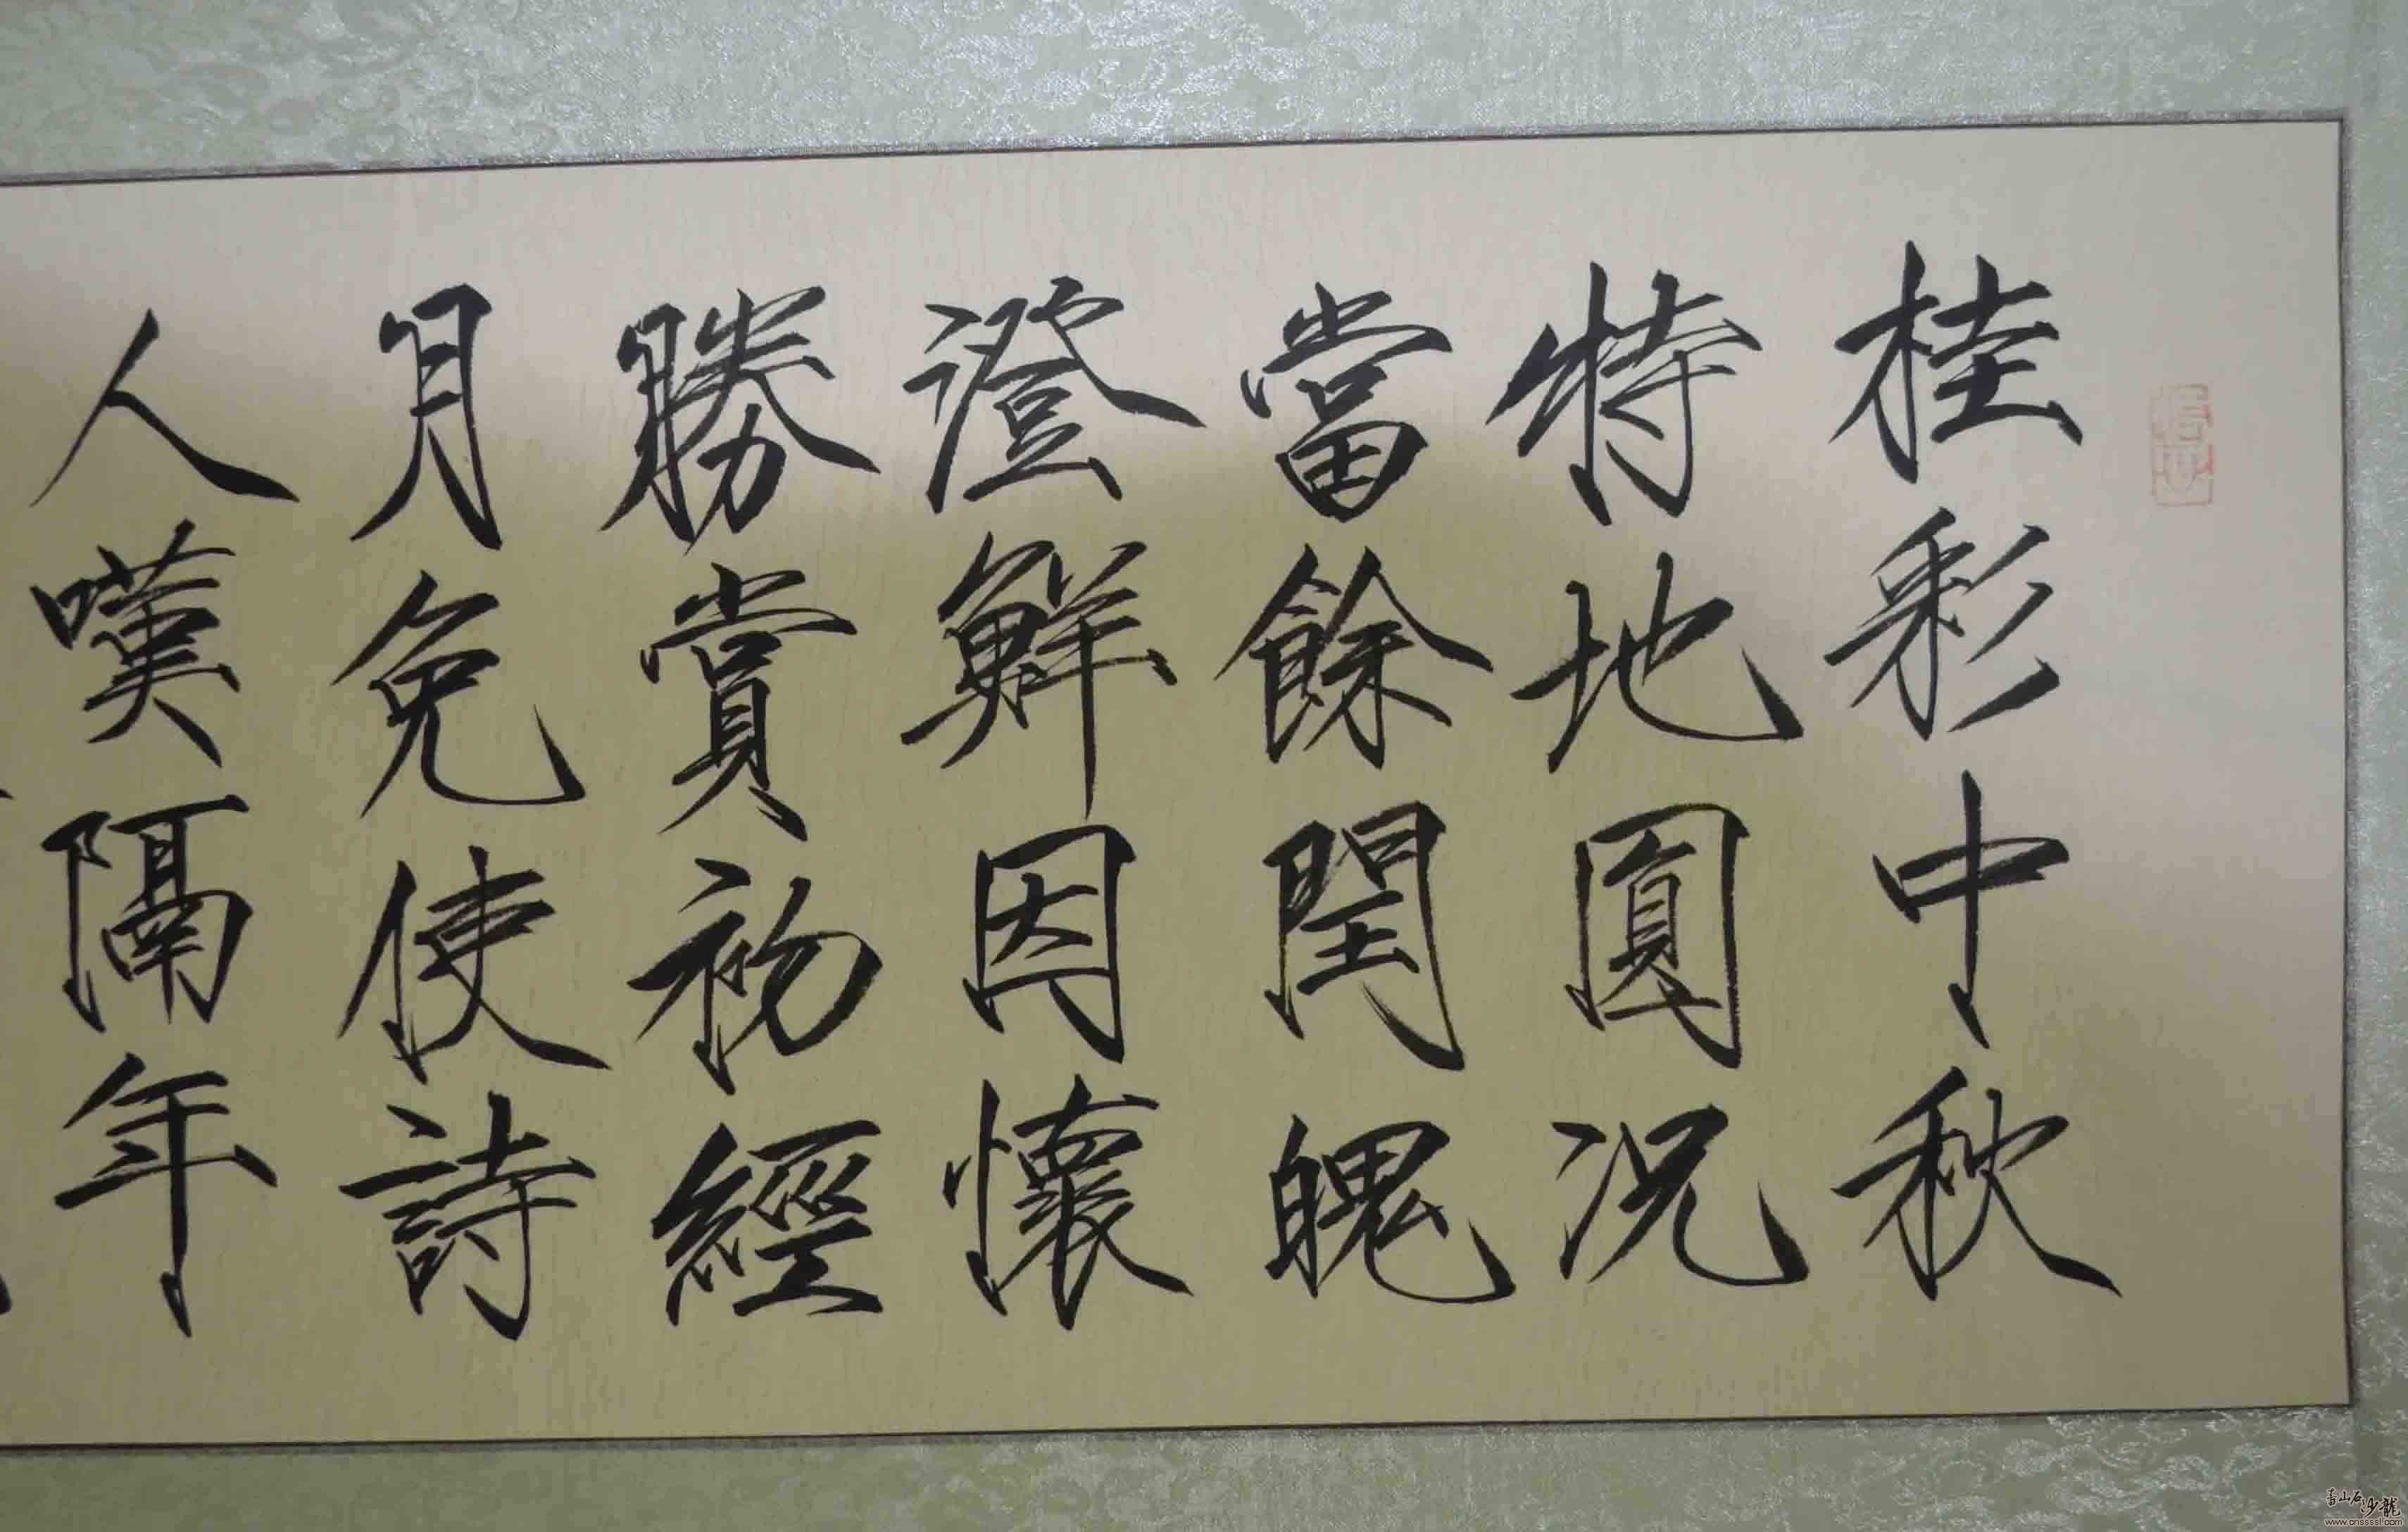 桂彩中秋
特地圓况
當餘閏魄
澄鮮因懷
勝賞初經
月免使詩
人嘆隔年
青山石沙龍
www.cnssssl.com